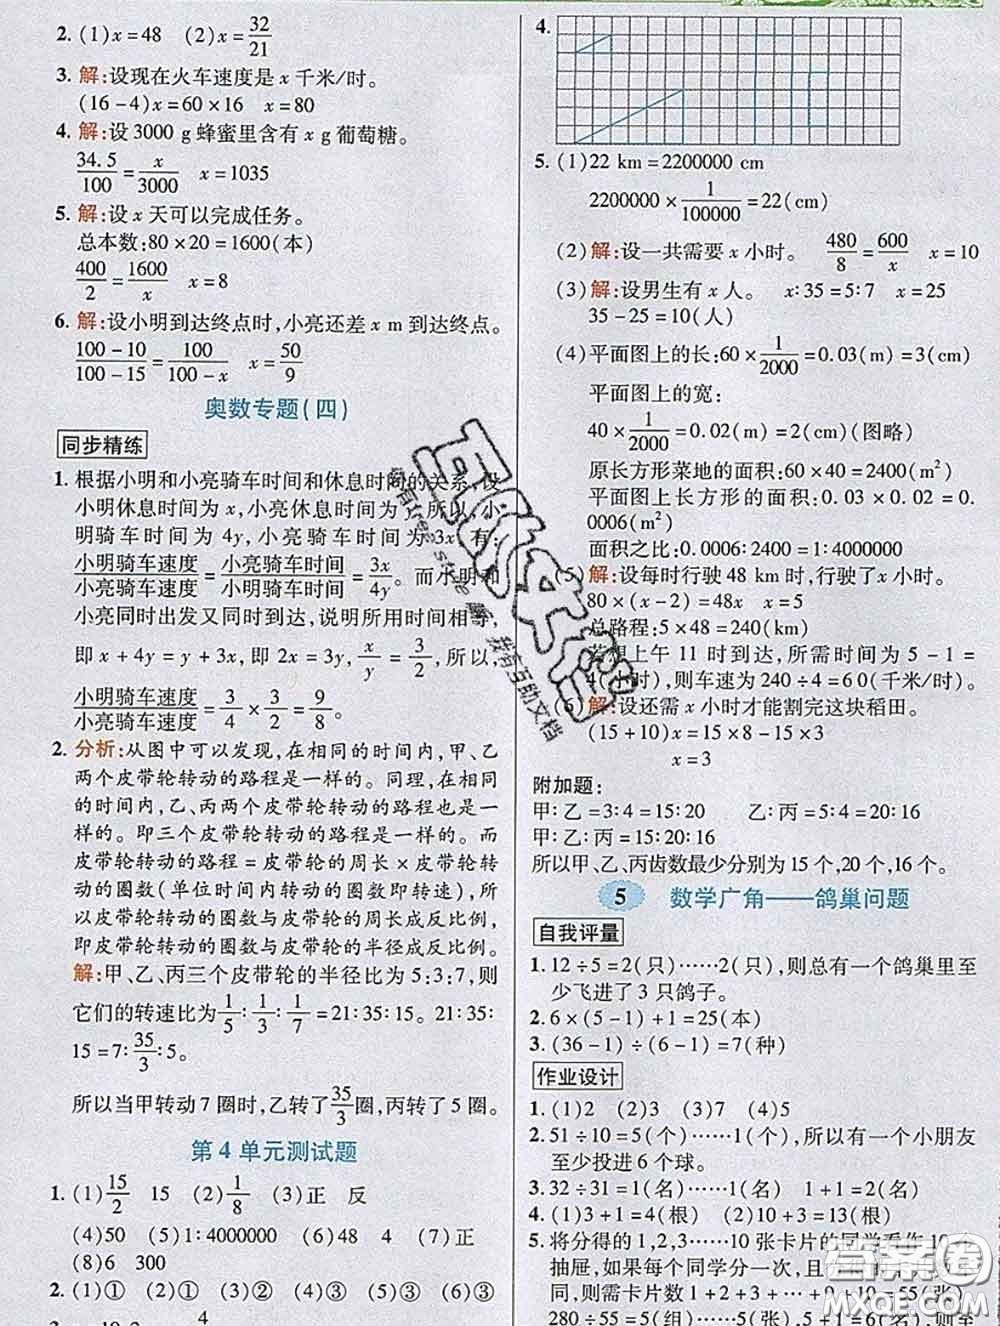 2. (1)x=48 (2)x=32/21
3. 解:设现在火车速度是 x 千米/时。
(16-4)x=60×16 x=80
4. 解:设 3000 g 蜂蜜里含有 x g 葡萄糖。
34.5/100=x/3000 x=1035
5. 解:设 x 天可以完成任务。
总本数:80×20=1600(本)
400/2=1600/x x=8
6. 解:设小明到达终点时,小亮还差 x m 到达终点。
(100-10)/(100-15)=100/(100-x) x=50/9
奥数专题(四)
同步精练
1. 根据小明和小亮骑车时间和休息时间的关系,设
小明休息时间为 x,小亮休息时间为 y,所以,小
明骑车时间为 4y,小亮骑车时间为 3x,有:
小明骑车速度/小亮骑车速度=小亮骑车时间/小明骑车时间=3x/4y。而小明和
小亮同时出发又同时到达,说明所用时间相等,
即 x+4y=y+3x,即 2x=3y,x/y=3/2,所以,
小明骑车速度/小亮骑车速度=3/4×3/2=9/8。
2. 分析:从图中可以发现,在相同的时间内,甲、乙
两个皮带轮转动的路程是一样的。同理,在相同
的时间内,乙、丙两个皮带轮转动的路程也是一
样的。即三个皮带轮转动的路程是一样的。而
皮带轮转动的路程=皮带轮的周长×皮带轮转
动的圈数(单位时间内转动的圈数即转速),所
以皮带轮转动的圈数与皮带轮的周长成反比例,
即皮带轮转动的圈数与皮带轮的半径成反比例。
解:甲、乙、丙三个皮带轮的半径比为 5:3:7,则
它们的转速比为1/5:1/3:1/7=21:35:15。21:35:
15=7:35/3:5。
所以当甲转动 7 圈时,乙转了35/3圈,丙转了 5 圈。
第 4 单元测试题
1. (1)15/2 15 (2)1/8 (3)正 反
(4)50 (5)1:4000000 (6)4 (7)正
(8)6 300
2. (1)① (2)① (3)② (4)② (5)③ (6)③
4.
5. (1)22 km=2200000 cm
2200000×1/100000=22(cm)
(2)解:设一共需要 x 小时。 480/8=600/x x=10
(3)解:设男生有 x 人。 x:35=5:7 x=25
35-25=10(人)
(4)平面图上的长:60×1/2000=0.03(m)=3(cm)
平面图上的宽:
40×1/2000=0.02(m)=2(cm)(图略)
原长方形菜地的面积:40×60=2400(m²)
平面图上长方形的面积:0.03×0.02=0.
0006(m²)
面积之比:0.0006:2400=1:4000000
(5)解:设每时行驶 48 km 时,行驶了 x 小时。
80×(x-2)=48x x=5
总路程:5×48=240(km)
若想上午 11 时到达,所需时间为 5-1=
4(小时),则车速为 240÷4=60(千米/时)。
(6)解:设还需 x 小时才能割完这块稻田。
(15+10)x=15×8-15×3
x=3
附加题:
甲:乙=3:4=15:20 乙:丙=5:4=20:16
甲:乙:丙=15:20:16
所以甲、乙、丙齿数最少分别为 15 个,20 个,16 个。
5 数学广角——鸽巢问题
自我评量
1. 12÷5=2(只)……2(只),则总有一个鸽巢里至
少飞进了 3 只鸽子。
2. 6×(5-1)+1=25(本)
3. (36-1)÷(6-1)=7(种)
作业设计
1. (1)2 (2)3 (3)7 (4)5
2. 51÷10=5(个)……1(个),所以有一个小朋友
至少投进 6 个球。
3. 32÷31=1(名)……1(名) 1+1=2(名)
4. (1)3+1=4(根) (2)10+3=13(根)
5. 将分得的 1,2,3……10 张卡片的同学看作 10
抽屉,如果每个同学分一次,且
同,则需卡片数 1+2+3+…+9+10=55(张),
280÷55=5(组)……5(张),5+1
答案圈
MXQE.COM
我有互助文档